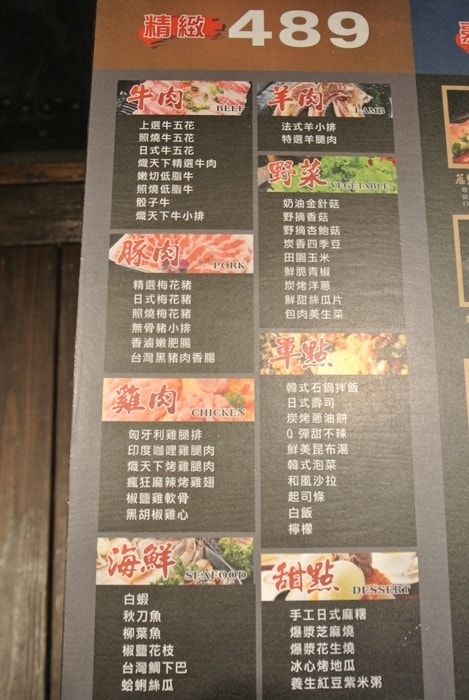 精緻 489
牛肉 BEEF
上選牛五花
照燒牛五花
日式牛五花
熾天下精選牛肉
嫩切低脂牛
照燒低脂牛
骰子牛
熾天下牛小排
豚肉 PORK
精選梅花豬
日式梅花豬
照燒梅花豬
無骨豬小排
香滷嫩肥腸
台灣黑豬肉香腸
雞肉 CHICKEN
匈牙利雞腿排
印度咖哩雞腿肉
熾天下烤雞腿肉
瘋狂麻辣烤雞翅
椒鹽雞軟骨
黑胡椒雞心
海鮮 SEAFOOD
白蝦
秋刀魚
柳葉魚
椒鹽花枝
台灣鯛下巴
蛤蜊絲瓜
羊肉 LAMB
法式羊小排
特選羊腿肉
野菜 VEGETABLE
奶油金針菇
野摘香菇
野摘杏鮑菇
炭香四季豆
田園玉米
鮮脆青椒
炭烤洋蔥
鮮甜絲瓜片
包肉美生菜
單點
韓式石鍋拌飯
日式壽司
炭烤蔥油餅
Q 彈甜不辣
鮮美昆布湯
韓式泡菜
和風沙拉
起司條
白飯
檸檬
甜點 DESSERT
手工日式麻糬
爆漿芝麻燒
爆漿花生燒
冰心烤地瓜
養生紅豆紫米粥